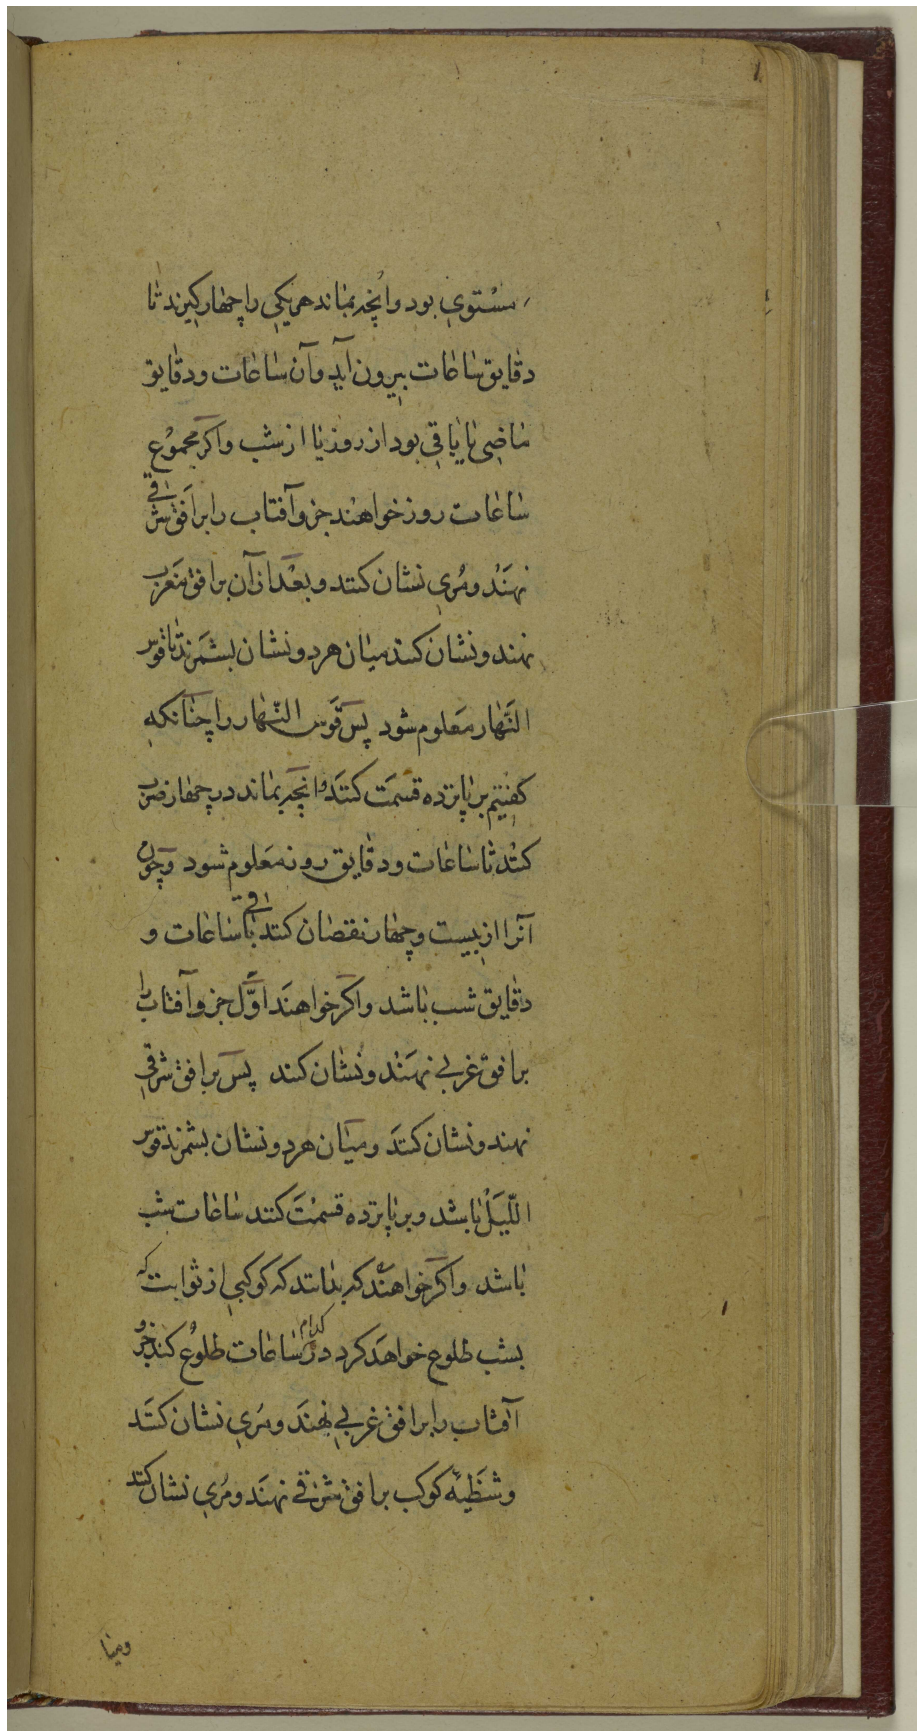 مستوی بود و انچه بماند هر یکی را چهار گیرند تا
دقایق ساعات بیرون آید و آن ساعات و دقایق
ماضی یا باقی بود از روز یا از شب و اکر مجموع
ساعات روز خواهند جزو آفتاب را بر افق شرقی
نهند و مری نشان کنند و بعد از آن بر افق مغرب
نهند و نشان کنند میان هر دو نشان بشمرند تا قوس
النهار معلوم شود پس قوس النهار را چنانکه
کفتیم بر پانزده قسمت کنند و انچه بماند در چهار ضرب
کنند تا ساعات و دقایق روز معلوم شود و چون
آنرا از بیست و چهار نقصان کنند باقی ساعات و
دقایق شب باشد و اکر خواهند اول جزو آفتاب را
بر افق غربی نهند و نشان کنند پس بر افق شرقی
نهند و نشان کنند و میان هر دو نشان بشمرند قوس
اللیل باشد و بر پانزده قسمت کنند ساعات شب
باشد و اکر خواهند که بدانند که کوکبی از ثوابت که
بشب طلوع خواهد کرد در کدام ساعات طلوع کند جزو
آفتاب را بر افق غربی نهند و مری نشان کنند
و شظیه کوکب بر افق شرقی نهند و مری نشان کنند